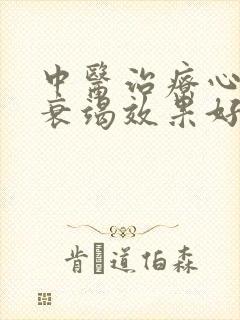 中醫治療心
衰竭效果好
肯 道伯森